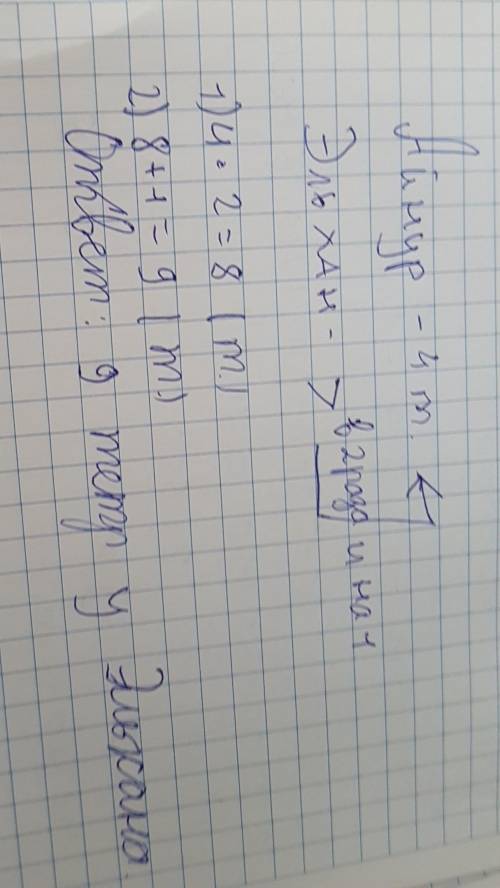 Айнур - 4 т.
Эльхан - > в 2 раза и на 1
1) 4 · 2 = 8 (т.)
2) 8 + 1 = 9 (т.)
Ответ: 9 тетр у Эльхана.